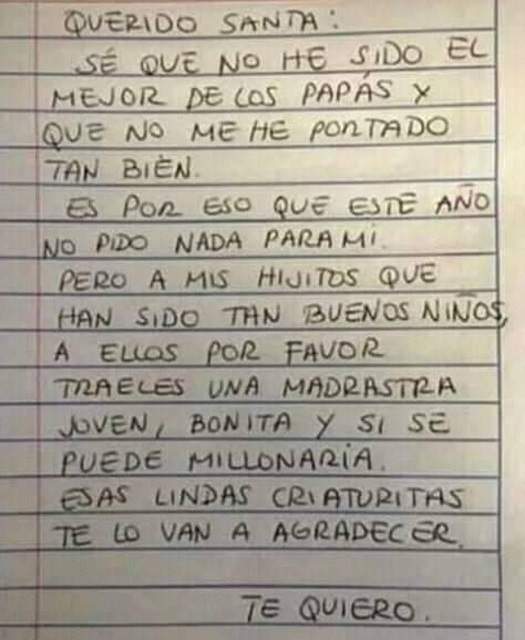 QUERIDO SANTA:
SÉ QUE NO HE SIDO EL
MEJOR DE LOS PAPÁS Y
QUE NO ME HE PORTADO
TAN BIÉN.
ES POR ESO QUE ESTE AÑO
NO PIDO NADA PARA MI.
PERO A MIS HIJITOS QUE
HAN SIDO TAN BUENOS NIÑOS,
A ELLOS POR FAVOR
TRAELES UNA MADRASTRA
JOVEN, BONITA Y SI SE
PUEDE MILLONARIA.
ESAS LINDAS CRIATURITAS
TE LO VAN A AGRADECER.
TE QUIERO.